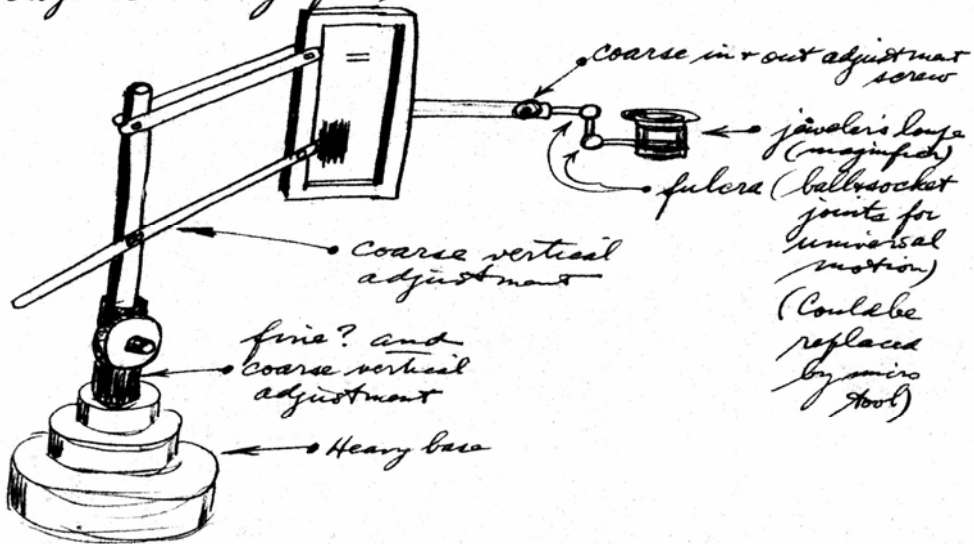 coarse in + out adjustment
screw
jeweler's loupe
(magnifier)
fulcra (ball & socket
joints for
universal
motion)
(Could be
replaced
by micro
tool)
coarse vertical
adjustment
fine? and
coarse vertical
adjustment
Heavy base